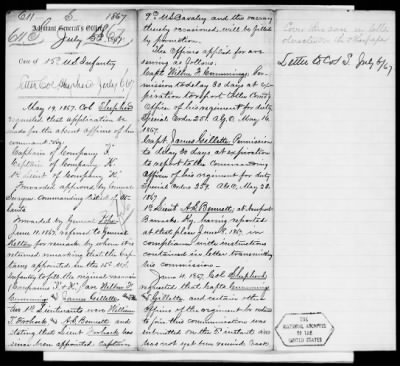 E 11 S. 1867
Adjutant General's Office
July 1867
Case of 15th U.S. Infantry
After Col. Shepherd July 6/67
May 19, 1867. Col. Shepherd
requested that application be
made for the absent officers of his
command viz:
Captain of Company F.
Captain of Company K.
1st Lieut of Company K.
Forwarded approved by General
Commanding
Forwarded by General
June 11, 1867. referred to General
for remarks by whom it was
returned remarking that the Cap-
tains appointed in the 15th U.S.
Infantry to fill the original vacancies
(Companies F & K) are Wilbur F.
Cummings & James Gillette, the
two 1st Lieutenants were William
T. & A.S. Bennett and
stating that Lieut
was never been appointed Captain
9th U.S. Cavalry and the vacancy
thereby occasioned will be filled
by promotion.
The officers applied for are
serving as follows.
Capt. Wilbur F. Cummings. Per-
mission to delay 30 days at ex-
piration to report to his Comdg
Officer of his regiment for duty
Special Orders 251. A.G.O. May 16.
1867.
Capt. James Gillette. Permission
to delay 30 days at expiration
to report to the Commanding
Officer of his regiment for duty
Special Orders 259. A.G.O. May 20.
1867
1st Lieut A.S. Bennett, at Newport
Barracks, Ky. having reported
at that place June 8, 1867, in
compliance with instructions
contained in letter transmitting
his commission.
June 11, 1867. Col. Shepherd
requested that Capts Cummings
& Gillette and certain other
Officers of the regiment be ordered
to join this communication was
submitted on the 5th instant and
has not yet been received back
Letter to Col S. July 6/67
THE
NATIONAL ARCHIVES
OF THE
UNITED STATES